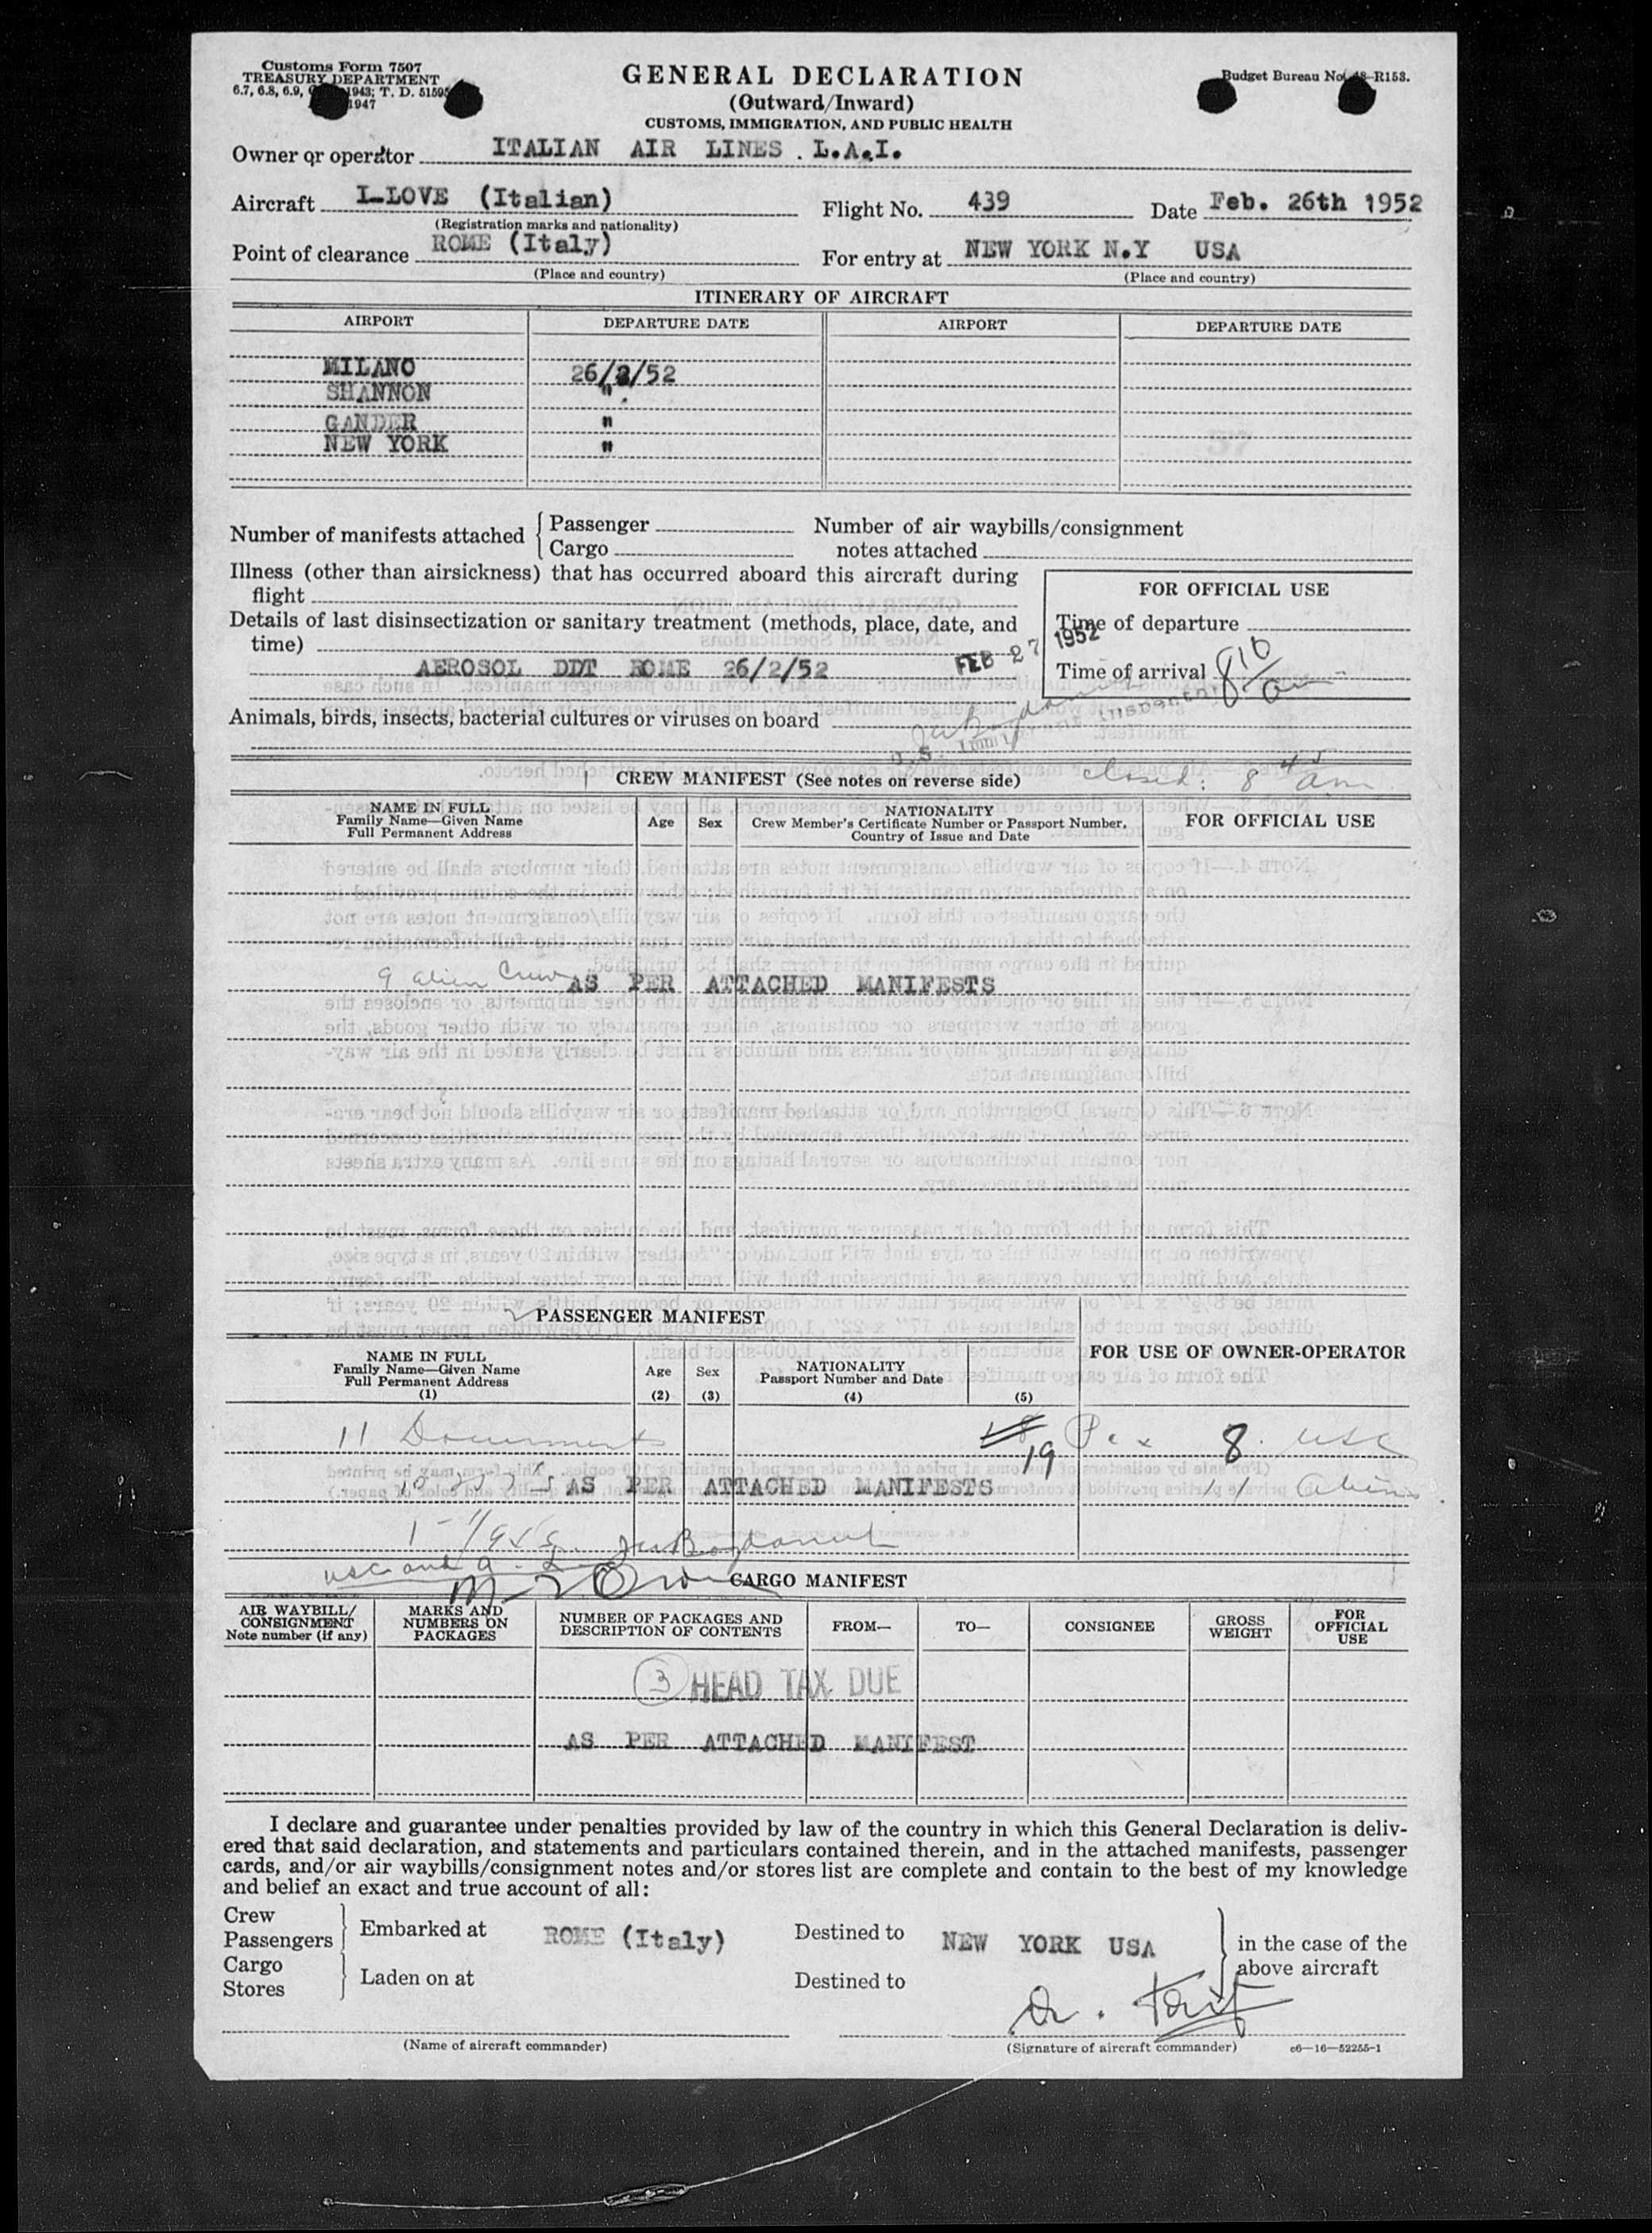 Customs Form 7507
TREASURY DEPARTMENT
6.7, 6.8, 6.9, 1943; T. D. 51595
1947
GENERAL DECLARATION
(Outward/Inward)
CUSTOMS, IMMIGRATION, AND PUBLIC HEALTH
Budget Bureau No. 48-R153.
Owner or operator ITALIAN AIR LINES . L.A.I.
Aircraft I-LOVE (Italian) Flight No. 439 Date Feb. 26th 1952
(Registration marks and nationality)
Point of clearance ROME (Italy) For entry at NEW YORK N.Y USA
(Place and country) (Place and country)
ITINERARY OF AIRCRAFT
AIRPORT DEPARTURE DATE AIRPORT DEPARTURE DATE
MILANO 26/2/52
SHANNON "
GANDER "
NEW YORK "
Number of manifests attached { Passenger
Cargo
Number of air waybills/consignment
notes attached
Illness (other than airsickness) that has occurred aboard this aircraft during
flight
Details of last disinsectization or sanitary treatment (methods, place, date, and
time)
AEROSOL DDT ROME 26/2/52
FEB 27 1952
FOR OFFICIAL USE
Time of departure
Time of arrival 810 am
Animals, birds, insects, bacterial cultures or viruses on board
U.S. Immigrant Inspector
CREW MANIFEST (See notes on reverse side) closed: 8 45 am
NAME IN FULL
Family Name—Given Name
Full Permanent Address
Age Sex
NATIONALITY
Crew Member's Certificate Number or Passport Number,
Country of Issue and Date
FOR OFFICIAL USE
9 alien Crew AS PER ATTACHED MANIFESTS
PASSENGER MANIFEST
NAME IN FULL
Family Name—Given Name
Full Permanent Address
(1)
Age
(2)
Sex
(3)
NATIONALITY
Passport Number and Date
(4)
(5)
FOR USE OF OWNER-OPERATOR
11 Documents 19 Pax 8 usc
AS PER ATTACHED MANIFESTS 11 Aliens
CARGO MANIFEST
AIR WAYBILL/
CONSIGNMENT
Note number (if any)
MARKS AND
NUMBERS ON
PACKAGES
NUMBER OF PACKAGES AND
DESCRIPTION OF CONTENTS
FROM—
TO—
CONSIGNEE
GROSS
WEIGHT
FOR
OFFICIAL
USE
3 HEAD TAX DUE
AS PER ATTACHED MANIFEST
I declare and guarantee under penalties provided by law of the country in which this General Declaration is deliv-
ered that said declaration, and statements and particulars contained therein, and in the attached manifests, passenger
cards, and/or air waybills/consignment notes and/or stores list are complete and contain to the best of my knowledge
and belief an exact and true account of all:
Crew
Passengers
Embarked at ROME (Italy) Destined to NEW YORK USA
Cargo
Stores
Laden on at Destined to
in the case of the
above aircraft
(Name of aircraft commander) (Signature of aircraft commander) c6—16—52255-1